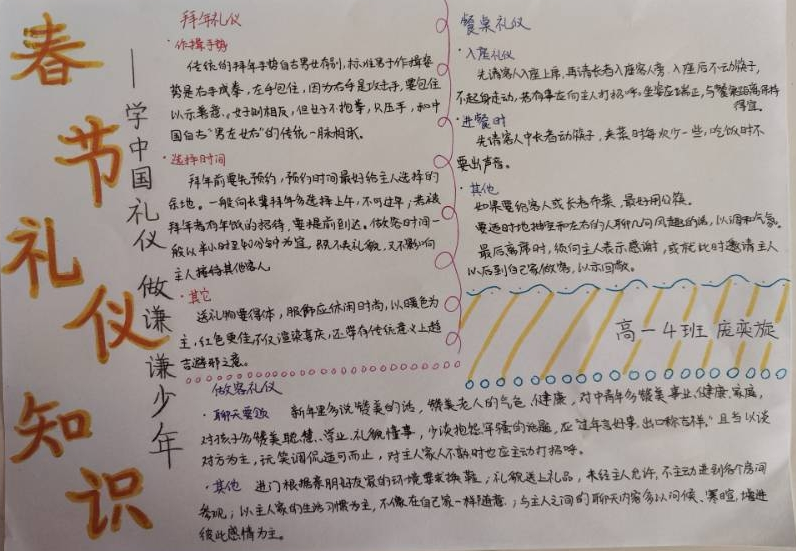 春节礼仪知识
——学中国礼仪 做谦谦少年
拜年礼仪
·作揖手势
传统的拜年手势自古男女有别，标准男子作揖姿
势是右手成拳，左手包住，因为右手是攻击手，要包住
以示善意。女子则相反，但女子不抱拳，只压手，和中
国自古“男左女右”的传统一脉相承。
·选择时间
拜年前要先预约，预约时间最好给主人选择的
余地。一般向长辈拜年多选择上午，不可过早，若被
拜年者有年饭的招待，要提前到达。做客时间一
般以半小时至40分钟为宜，既不失礼貌，又不影响
主人接待其他客人
·其它
送礼物要得体，服饰应休闲时尚，以暖色为
主，红色更佳不仅渲染喜庆，还带有传统意义上趋
吉避邪之意。
餐桌礼仪
·入座礼仪
先请客人入座上席，再请长者入座客人旁，入座后不动筷子，
不起身走动，若有事应向主人打招呼。坐姿应端正，与餐桌距离保持
得宜。
·进餐时
先请客人中长者动筷子，夹菜时每次少一些，吃饭时不
要出声音。
·其他
如果要给客人或长者布菜，最好用公筷。
要适时地抽空和左右的人聊几句风趣的话，以调和气氛。
最后离席时，须向主人表示感谢，或就此时邀请主人
以后到自己家做客，以示回敬。
高一4班 庞奕旋
做客礼仪
·聊天要领 新年里多说赞美的话，赞美老人的气色、健康，对中青年多赞美事业、健康、家庭，
对孩子多赞美聪慧、学业、礼貌懂事，少谈抱怨牢骚的话题，应“过年言好事，出口称吉祥。”且当以谈
对方为主，玩笑调侃适可而止，对主人家人不熟时也应主动打招呼。
·其他 进门根据亲朋好友家的环境要求换鞋；礼貌送上礼品，未经主人允许，不主动进到各个房间
参观；以主人家的生活习惯为主，不像在自己家一样随意；与主人之间的聊天内容多以问候、寒暄，增进
彼此感情为主。